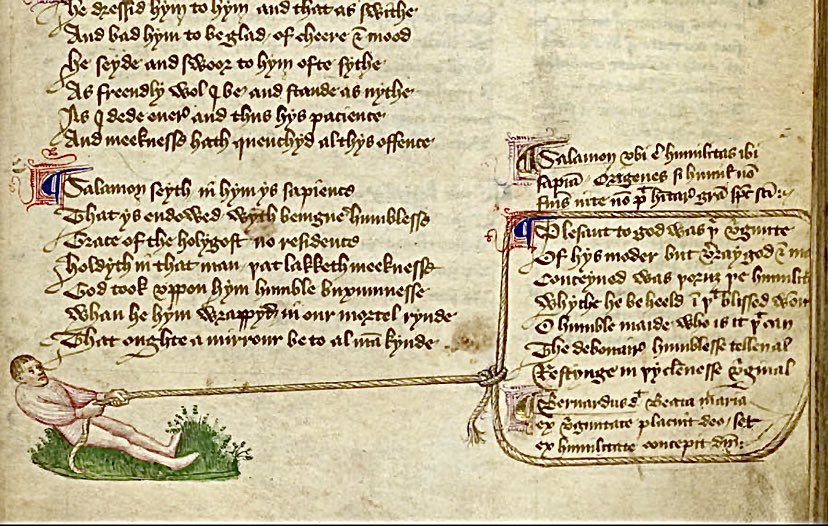 He dressid hym to hym and that as swithe
And bad hym to be glad of cheere & mood
He seyde and swoor to hym ofte sythe
As freendly wol I be and stande as nythe
As I dede over and thus hys pacience
And meeknesse hath quenchyd al thys offence
Salamon seyth in hym ys sapience
That ys endowed wyth bemgne humblesse
Grace of the holy gost no residence
Holdyth in that man þat lakketh meeknesse
God took vppon hym humble buxumnesse
Whan he hym wrappyd in our mortel rynde
That oughte a mirrour be to al mākynde
Salamon vbi ē humilitas ibi
sapiā Origenes si humil nō
fuis nō hitar grā spc sci
Plesant to god was þe vginite
Of hys moder but verray god & ma
Conceyued was þoruz þe humilit
Whyche he beheeld ī þt blessed wom
O humble maide who is it þt can
The debonair humblesse tellen al
Restynge in þy clēnesse vginal
Bernardus de Beata maria
ex vginitate placuit deo set
ex humilitate concepit dm